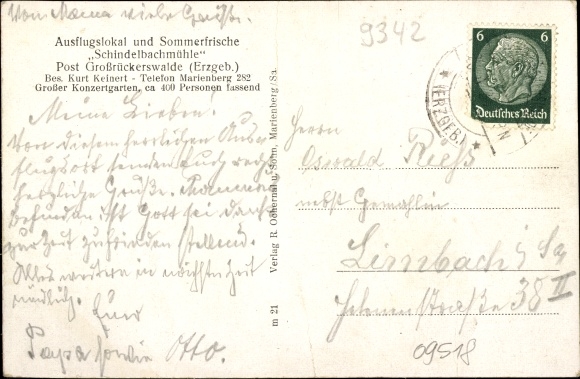 Von Mama viele Grüße.
9342
Ausflugslokal und Sommerfrische
„Schindelbachmühle“
Post Großrückerswalde (Erzgeb.)
Bes. Kurt Keinert - Telefon Marienberg 282
Großer Konzertgarten, ca 400 Personen fassend
Meine Lieben!
Von diesem herrlichen Aus-
flugsort senden Euch recht
herzliche Grüße. Mamas
Befinden ist Gott sei dank
zur Zeit zufrieden stellend.
Alles weitere in nächster Zeit
mündlich. Euer
Papa sowie Otto.
m 21 Verlag R. Oehernal u. Sohn, Marienberg/Sa.
6 6
Deutsches Reich
(ERZGEB.)
Herrn
Oswald
nebst Gemahlin
Limbach i/ Sa
38 II
09518